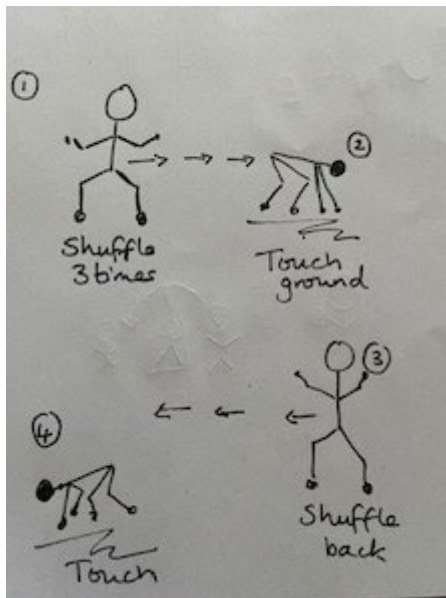 ①
Shuffle
3 times
②
Touch
ground
③
Shuffle
back
④
Touch